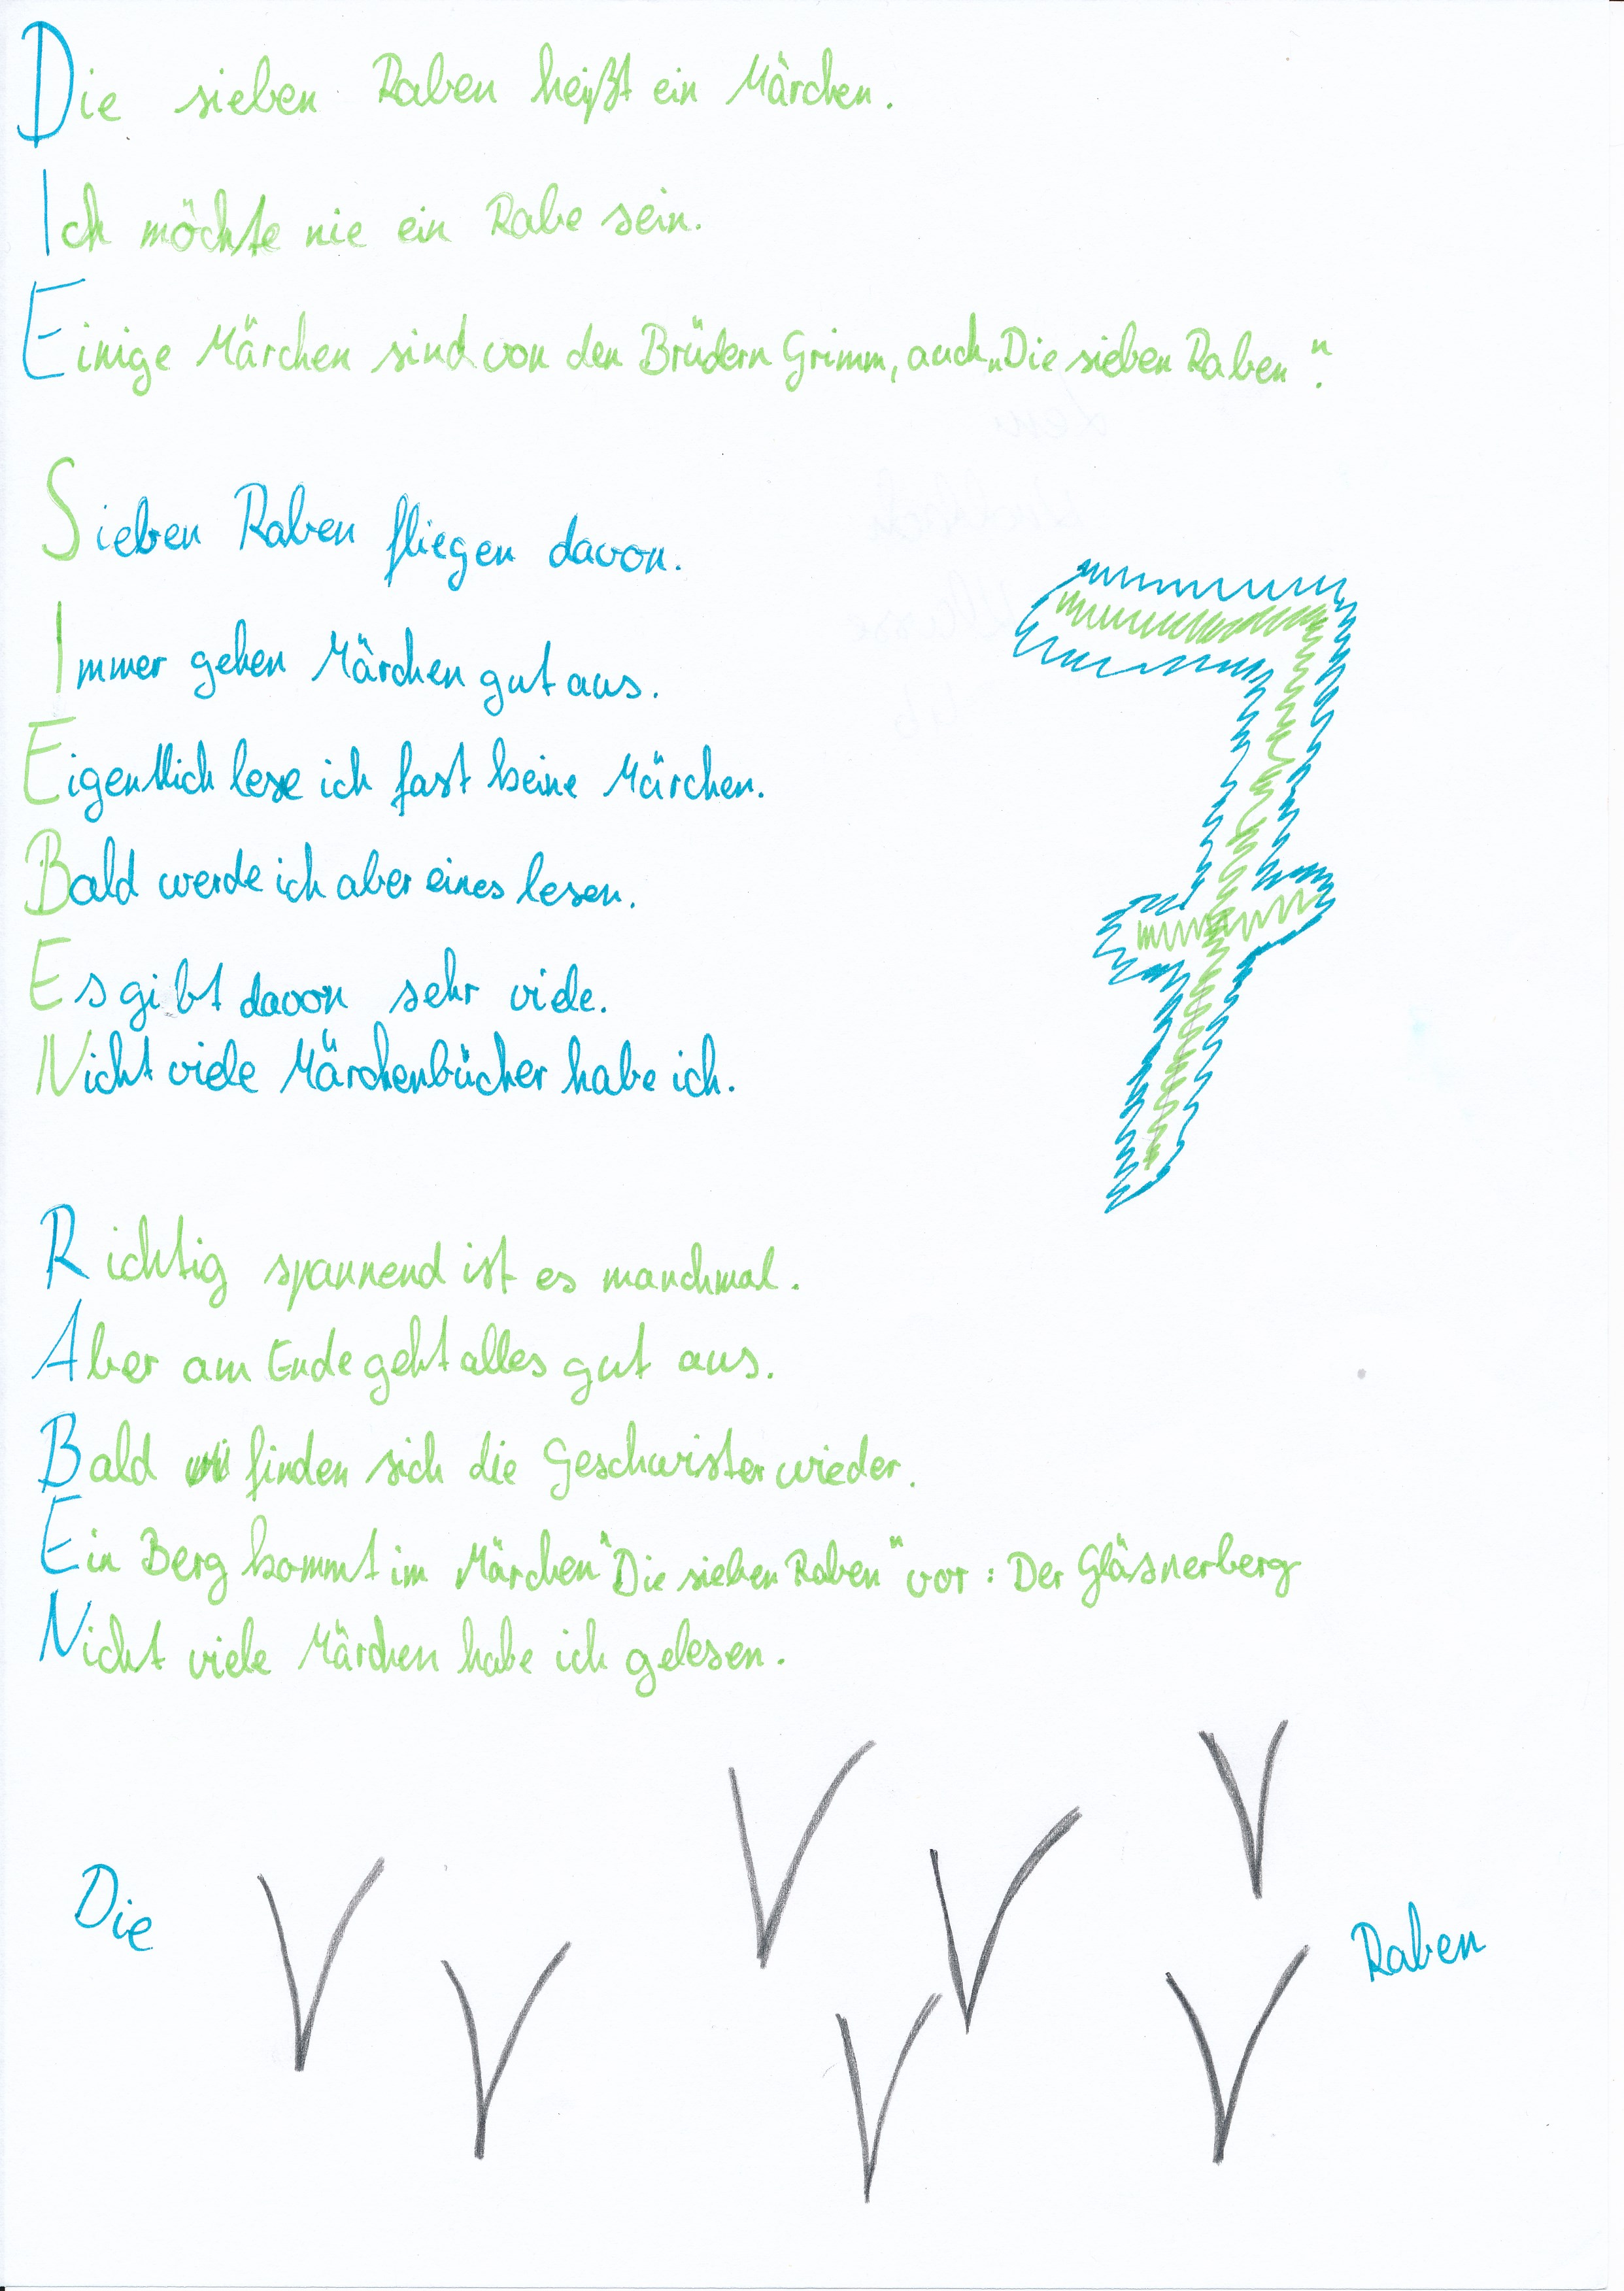 Die sieben Raben heißt ein Märchen.
Ich möchte nie ein Rabe sein.
Einige Märchen sind von den Brüdern Grimm, auch „Die sieben Raben“.
Sieben Raben fliegen davon.
Immer gehen Märchen gut aus.
Eigentlich lese ich fast keine Märchen.
Bald werde ich aber eines lesen.
Es gibt davon sehr viele.
Nicht viele Märchenbücher habe ich.
Richtig spannend ist es manchmal.
Aber am Ende geht alles gut aus.
Bald finden sich die Geschwister wieder.
Ein Berg kommt im Märchen "Die sieben Raben" vor: Der Gläsnerberg
Nicht viele Märchen habe ich gelesen.
7
Die Raben